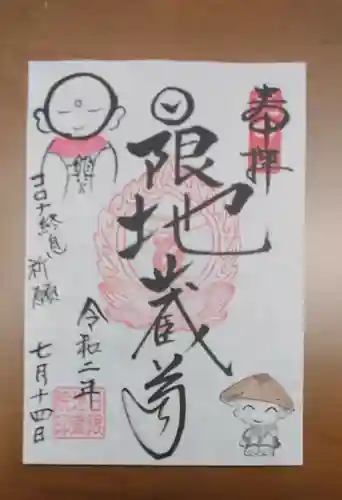 奉拝
日限地蔵尊
令和二年
七月十四日
コロナ終息
祈願